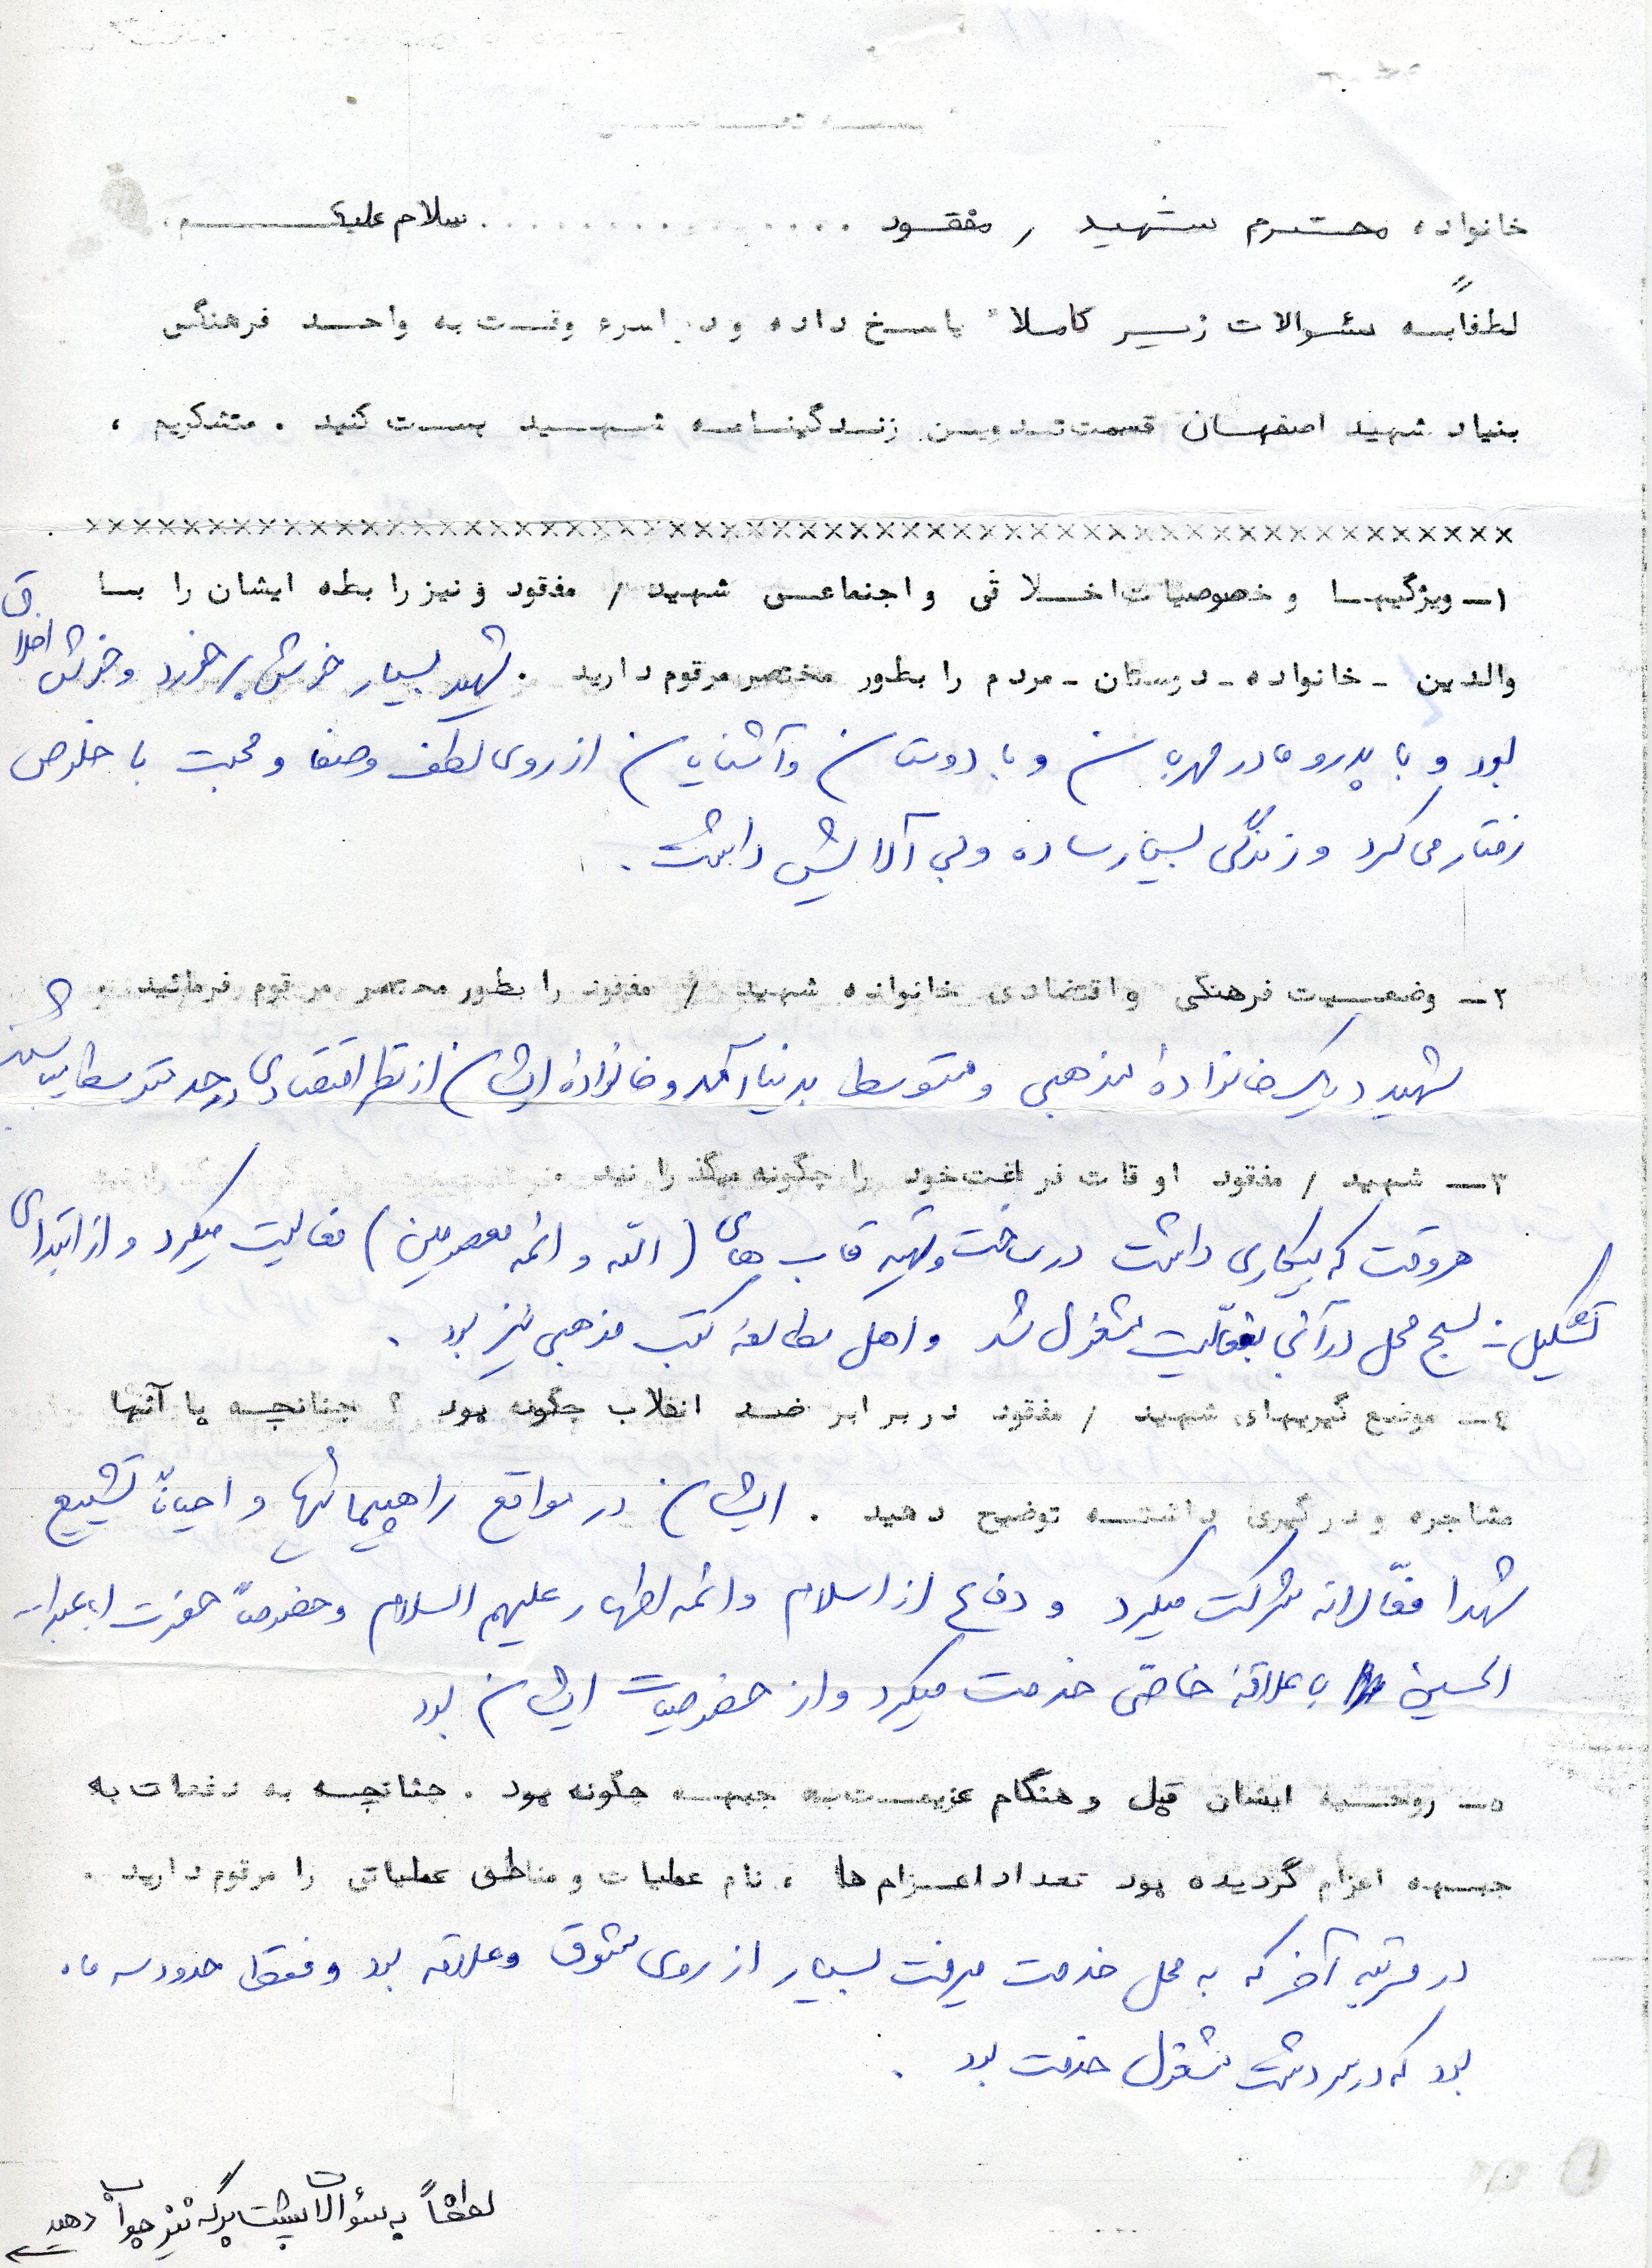 خانواده محترم شهید / مفقود ................ سلام علیکم.
لطفاً به سئوالات زیر کاملا" پاسخ داده و در اسرع وقت به واحد فرهنگی
بنیاد شهید اصفهان قسمت تدوین زندگینامه شهید پست کنید . متشکریم .
××××××××××××××××××××××××××××××××××××××××××××××××××××××××
۱- ویژگیها و خصوصیات اخلاقی و اجتماعی شهید / مفقود و نیز رابطه ایشان را با
والدین - خانواده - دوستان - مردم را بطور مختصر مرقوم دارید . شهید بسیار خوش برخورد و خوش اخلاق
بود و با پدر و مادر مهربان و با دوستان و آشنایان از روی لطف و صفا و محبت با خلوص
رفتار می کرد و زندگی بسیار ساده و بی آلایش داشت .
۲- وضعیت فرهنگی و اقتصادی خانواده شهید / مفقود را بطور مختصر مرقوم فرمائید .
شهید در یک خانوادهٔ مذهبی و متوسط بدنیا آمد و خانوادهٔ ایشان از نظر اقتصادی در حد متوسط
۳- شهید / مفقود اوقات فراغت خود را چگونه میگذرانید .
هر وقت که بیکاری داشت در ساخت و تهیه قاب های (الله و ائمه معصومین) فعالیت میکرد و از ابتدای
تشکیل بسیج محل در آن بفعّالیت مشغول شد و اهل مطالعه کتب مذهبی نیز بود .
٤- موضع گیریهای شهید / مفقود در برابر ضد انقلاب چگونه بود ؟ چنانچه با آنها
مشاجره و درگیری داشته توضیح دهید . ایشان در مواقع راهپیمائیها و احیاناً تشییع
شهدا فعّالانه شرکت میکرد و دفاع از اسلام و ائمه اطهار علیهم السلام و خصوصاً حضرت اباعبدا..
الحسین با علاقهٔ خاصّی خدمت میکرد و از خصوصیات ایشان بود
۵- روحیه ایشان قبل و هنگام عزیمت به جبهه چگونه بود . چنانچه به دفعات به
جبهه اعزام گردیده بود تعداد اعزام ها ، نام عملیات و مناطق عملیاتی را مرقوم دارید .
در مرتبه آخر که به محل خدمت میرفت بسیار از روی شوق و علاقه بود و فقط حدود سه ماه
بود که در سردشت مشغول خدمت بود .
لطفاً به سئوالات پشت برگه نیز جواب دهید